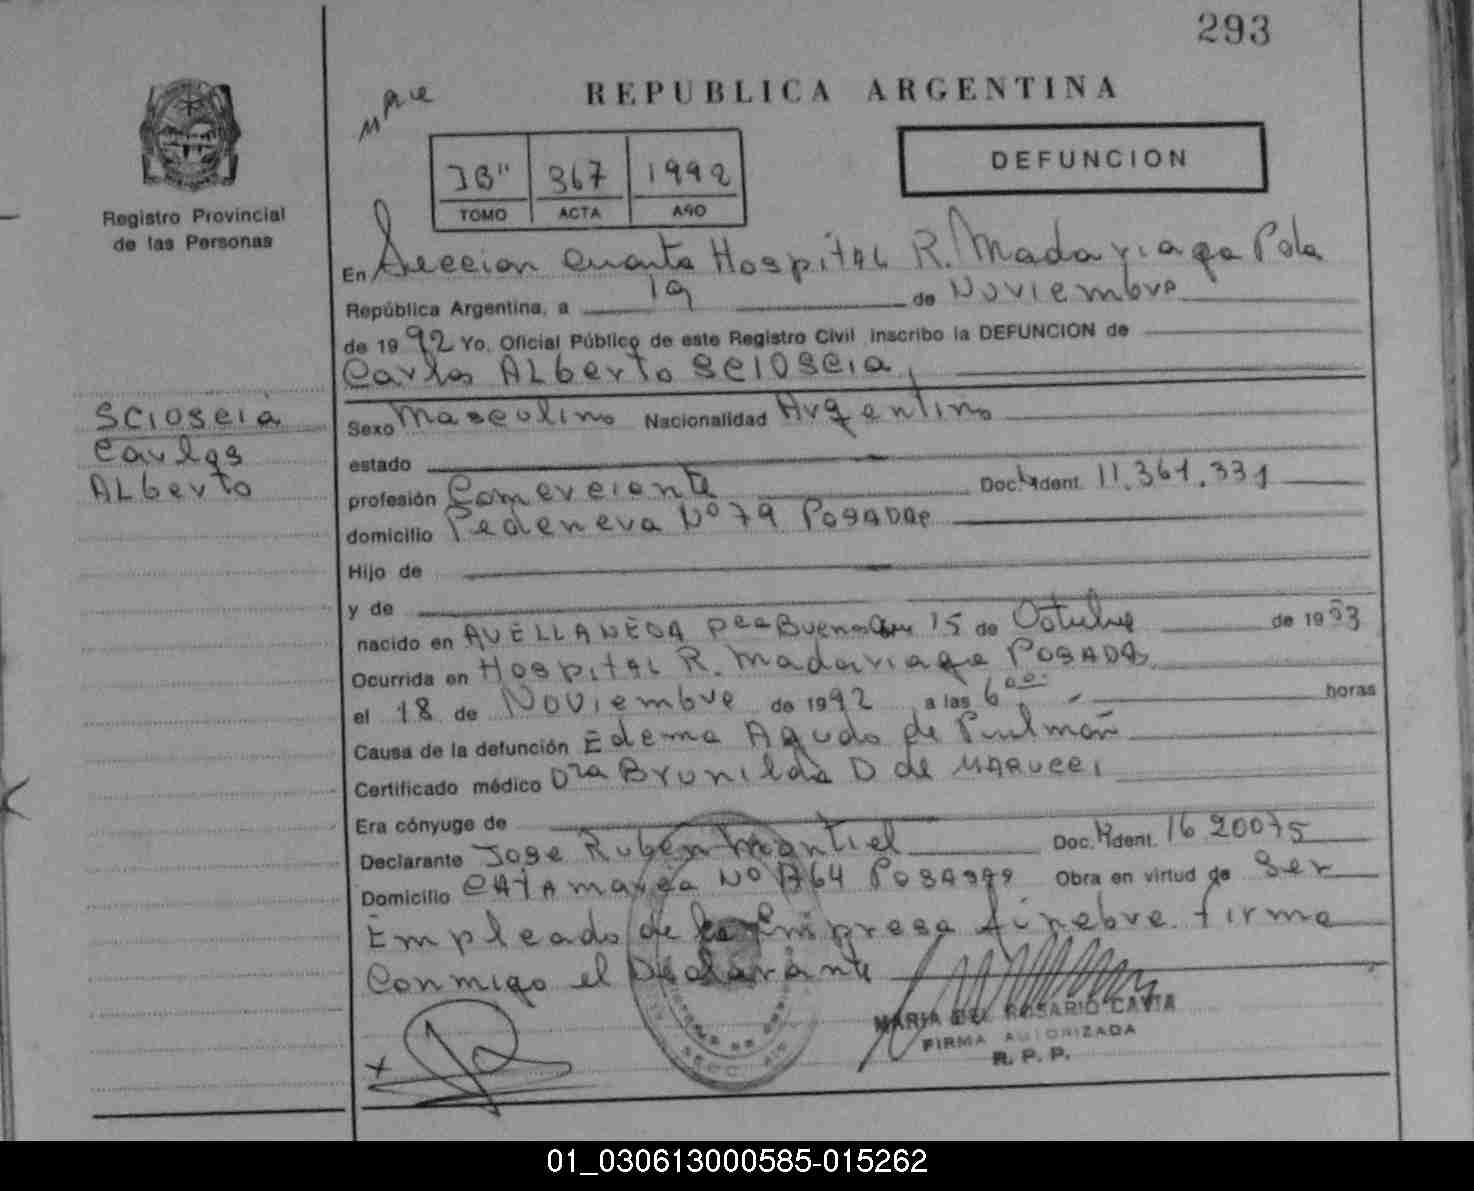 293
REPUBLICA ARGENTINA
DEFUNCION
367 1992
TOMO ACTA AÑO
Registro Provincial
de las Personas
En Seccion Cuarta Hospital R. Madariaga
República Argentina, a 19 de Noviembre
de 1992 Yo, Oficial Público de este Registro Civil inscribo la DEFUNCION de
Carlos Alberto Scioscia
Scioscia
Carlos
Alberto
Sexo Masculino Nacionalidad Argentino
estado
profesión Comerciante Doc. Ident. 11.361.331
domicilio Nº 79 Posadas
Hijo de
y de
nacido en AVELLANEDA Pcia Buenos Aires 15 de Octubre de 1953
Ocurrida en Hospital R. Madariaga Posadas
el 18 de Noviembre de 1992 a las 6 00 horas
Causa de la defunción Edema Agudo de Pulmón
Certificado médico Dra Brunilda D de Marucci
Era cónyuge de
Declarante Jose Ruben Montiel Doc. Ident. 16 20075
Domicilio Catamarca Nº 1764 Posadas Obra en virtud de Ser
Empleado de la Empresa fúnebre. firma
Conmigo el Declarante
MARIA DEL ROSARIO CAVIA
FIRMA AUTORIZADA
R. P. P.
01_030613000585-015262